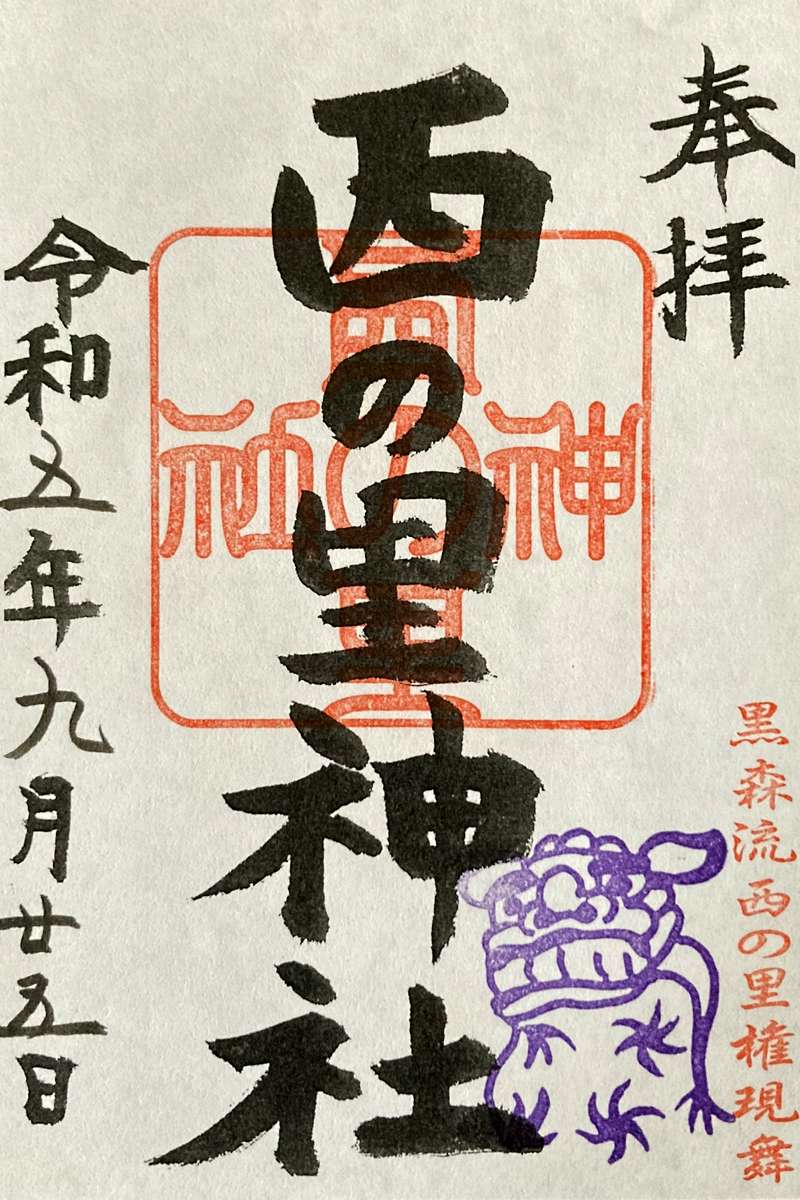 奉拝
黒森流西の里権現舞
西の里神社
西の里神社
令和五年九月廿五日